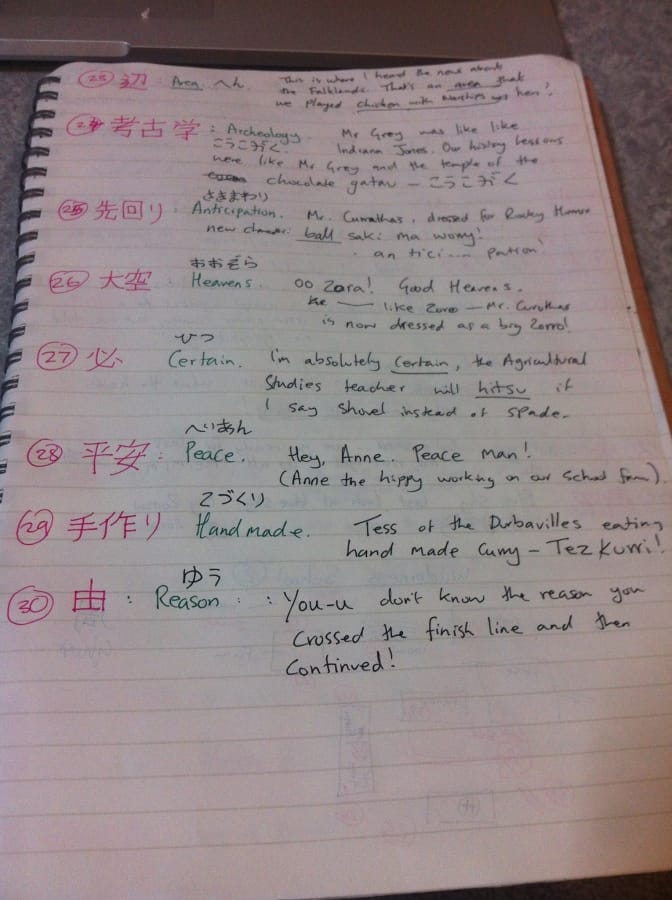 (23) 辺 : Area. へん This is where I heard the news about
the Falklands. That's an area that
we played chicken with warships hen!
(24) 考古学 : Archeology. Mr Grey was like like
こうこがく Indiana Jones. Our history lessons
were like Mr Grey and the temple of the
chocolate gatau - こうこがく
さきまわり
(25) 先回り : Anticipation. Mr. dressed for Rocky Horror
new character: ball saki ma worry!
an tici... pation!
おおぞら
(26) 大空 Heavens. OO Zora! Good Heavens.
like Zorro - Mr.
is now dressed as a big Zorro!
ひつ
(27) 必 Certain. I'm absolutely certain, the Agricultural
Studies teacher will hitsu if
I say shovel instead of spade.
へいあん
(28) 平安 : Peace. Hey, Anne. Peace man!
(Anne the hippy working on our school farm).
てづくり
(29) 手作り Handmade. Tess of the Durbavilles eating
hand made curry - Tez Kurri!
ゆう
(30) 由 : Reason : : You-u don't know the reason you
crossed the finish line and then
continued!